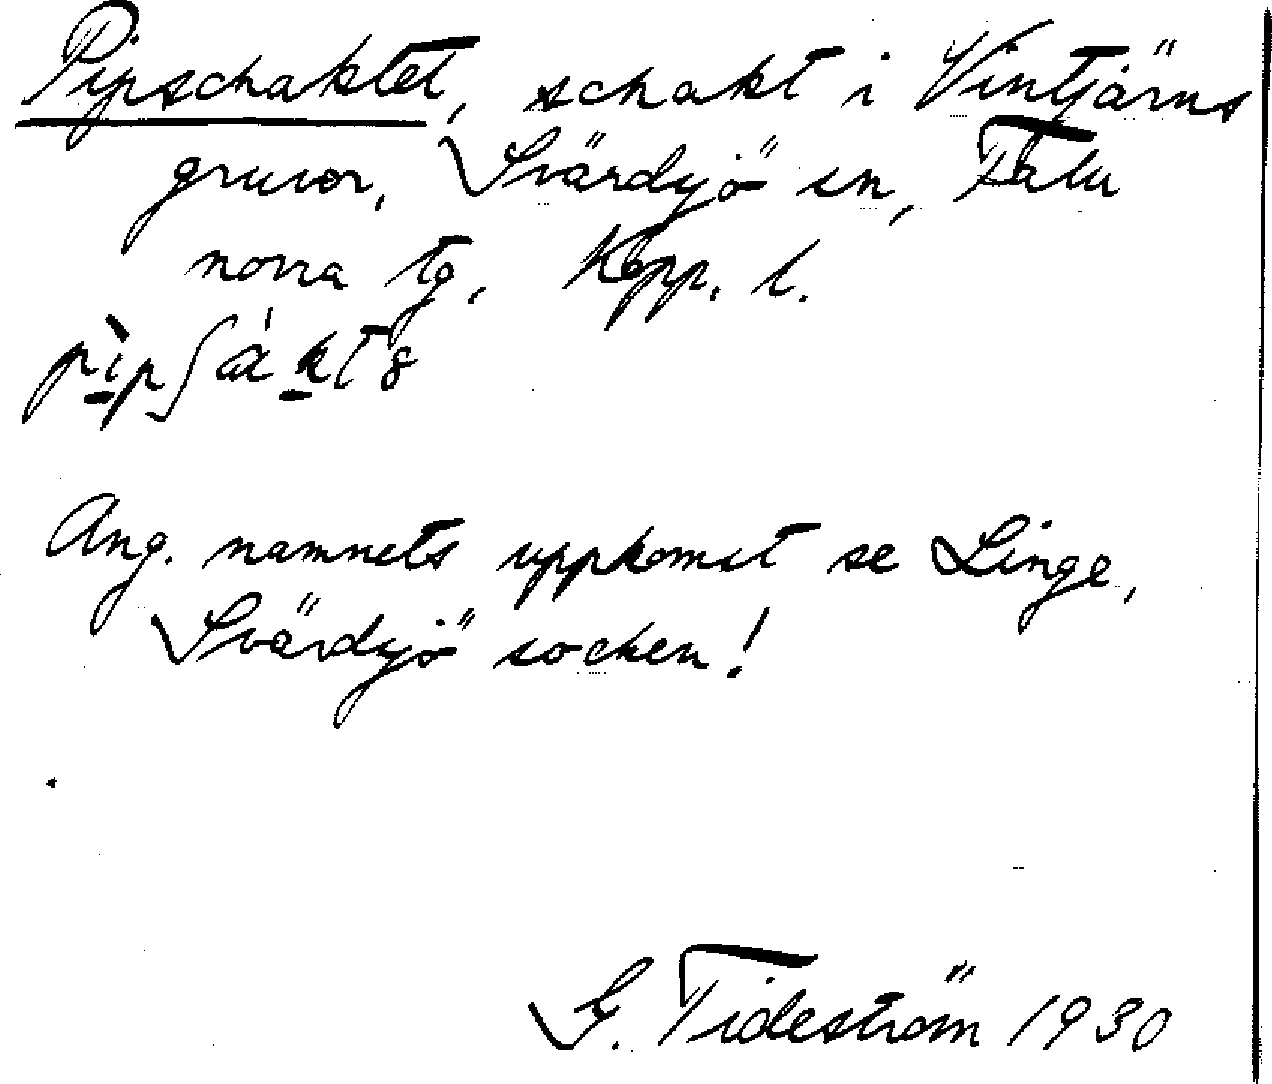 Pipschaktet, schakt i Vintjärns
gruvor, Svärdsjö sn, Falu
norra tg, Kopp. l.
Ang. namnets uppkomst se Linge,
Svärdsjö socken!
G. Tideström 1930